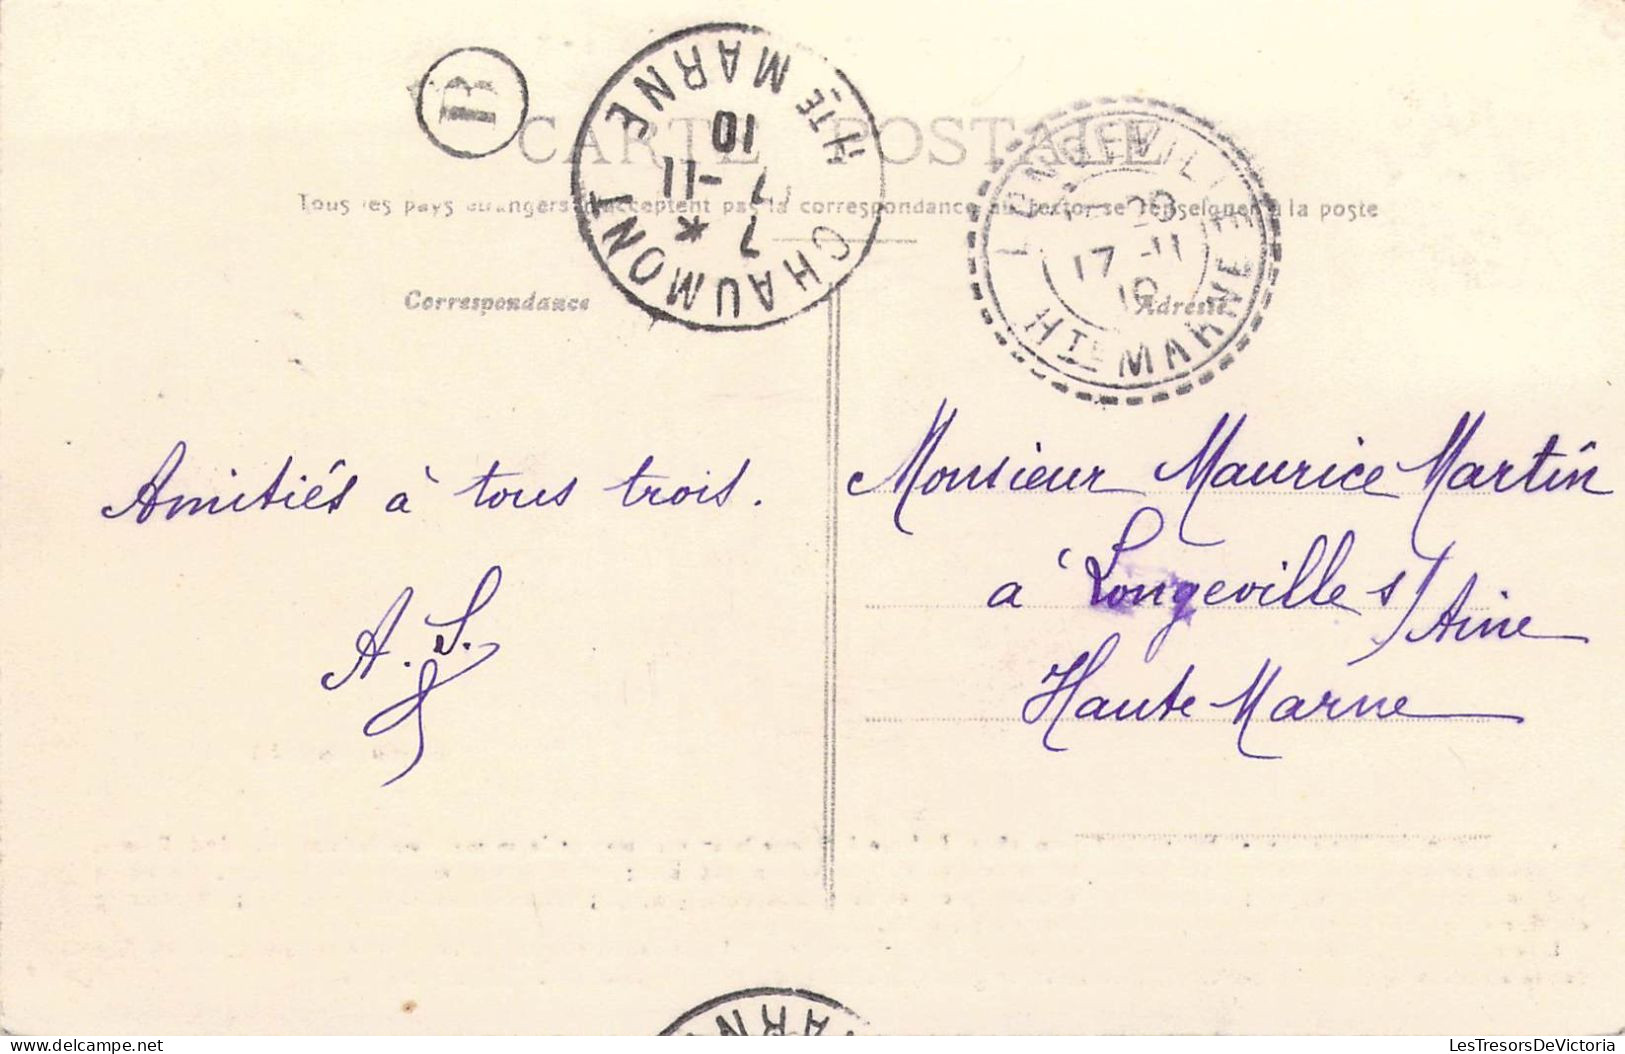 B
CARTE POSTALE
Tous les pays étrangers n'acceptent pas la correspondance au recto, se renseigner à la poste
CHAUMONT HTE MARNE
7 *
7 -11
10
LONGEVILLE HTE MARNE
20
17 -11
10
Correspondance
Adresse
Amitiés à tous trois.
A. S.
Monsieur Maurice Martin
à Longeville s/Aine
Haute Marne
LesTresorsDeVictoria